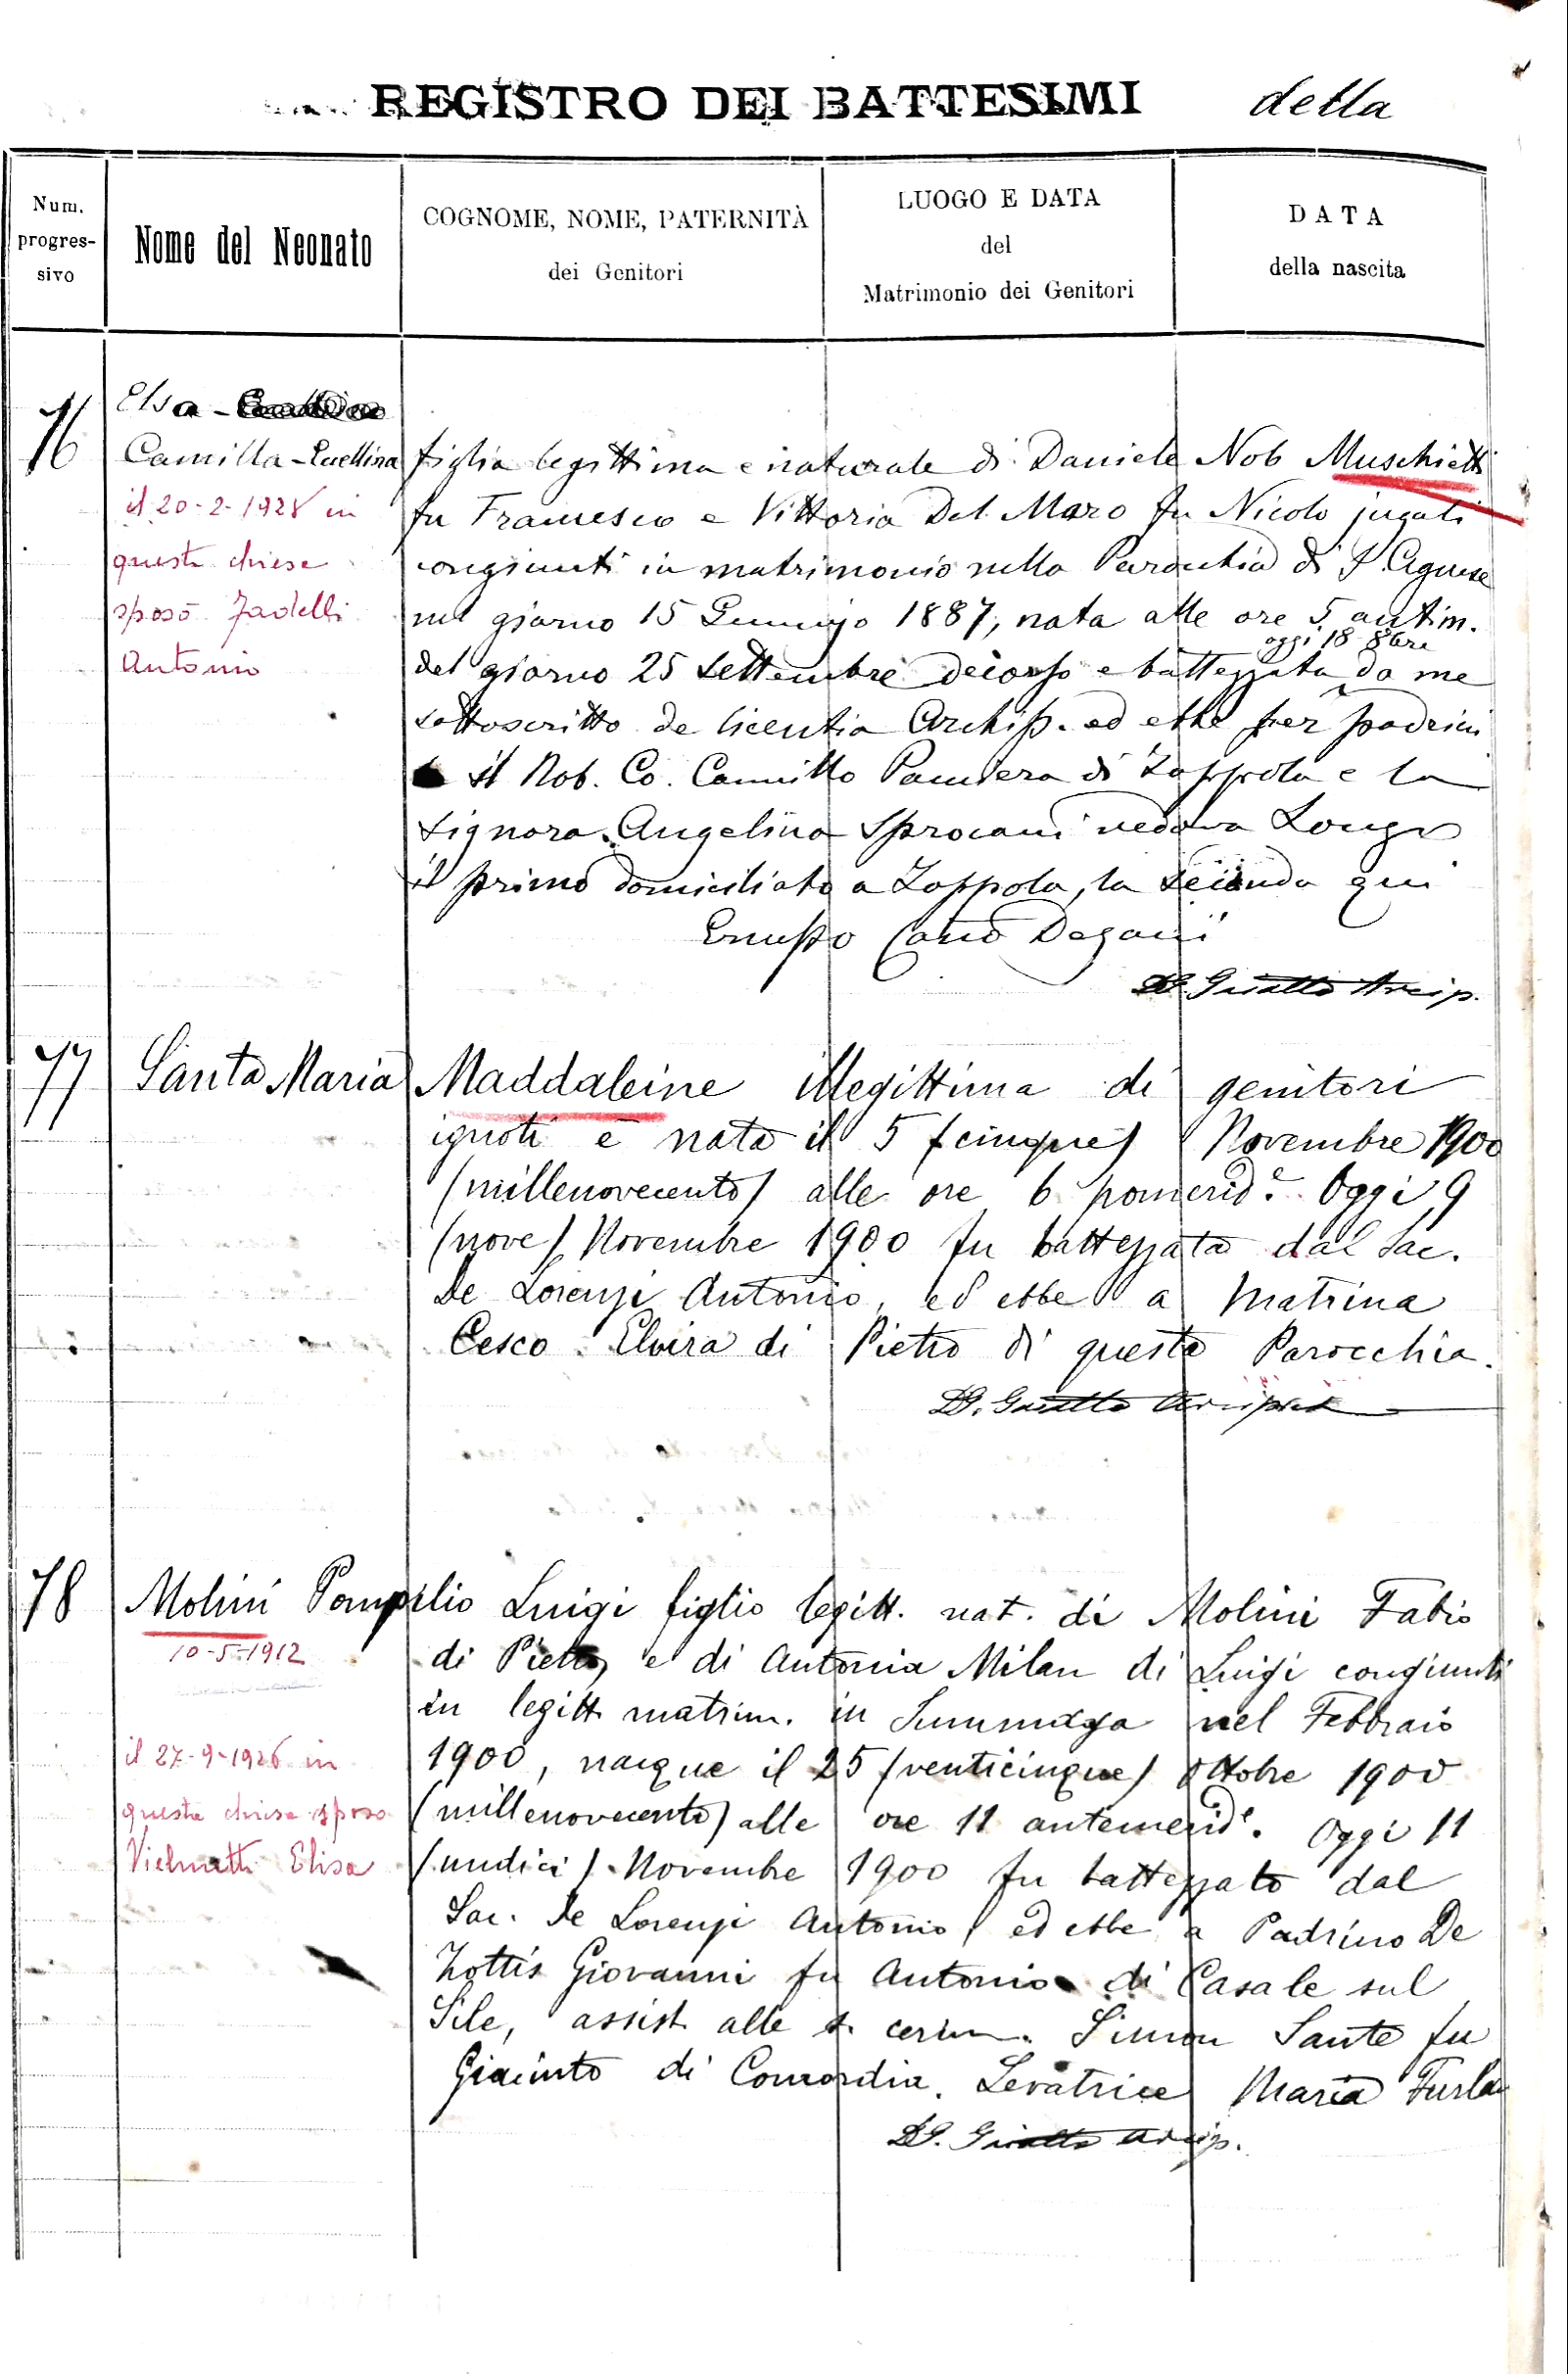 REGISTRO DEI BATTESIMI della
Num. progres- sivo
Nome del Neonato
COGNOME, NOME, PATERNITÀ
dei Genitori
LUOGO E DATA
del
Matrimonio dei Genitori
DATA
della nascita
76
Elsa -
Camilla - Luellina
il 20-2-1928 in
questa chiesa
sposò
Antonio
figlia legittima e naturale di Daniele Nob Muschietti
fu Francesco e Vittoria Del Maro fu Nicolo jugali
congiunti in matrimonio nella Parochia di S. Agnese
nel giorno 15 1887, nata alle ore 5 antim.
oggi 18 8bre
del giorno 25 Settembre decorso e battezzata da me
sottoscritto de licentia Archip. ed ebbe per padrini
il Nob. Co. Camillo Panciera di Zoppola e la
Signora Angelina Sprocani vedova Longo
il primo domiciliato a Zoppola, la seconda qui
Carlo Degani
D. Guatto Arcip.
77
Santa Maria
Maddaleine illegittima di genitori
ignoti è nata il 5 (cinque) Novembre 1900
(millenovecento) alle ore 6 pomerid.e Oggi 9
(nove) Novembre 1900 fu battezzata dal Sac.
De Lorenzi Antonio, ed ebbe a Matrina
Cesco Elvira di Pietro di questa Parocchia.
D. Guatto Arcipret
78
Molini Pompilio Luigi figlio legitt. nat. di Molini Fabio
10-5-1912
di Pietro, e di Antonia Milan di Luigi congiunti
in legitt. matrim. in Summaga nel Febbraio
il 27-9-1926 in
1900, nacque il 25 (venticinque) Ottobre 1900
questa chiesa sposò
(millenovecento) alle ore 11 antemerid.e Oggi 11
Elisa
(undici) Novembre 1900 fu battezzato dal
Sac. De Lorenzi Antonio, ed ebbe a Padrino De
Zottis Giovanni fu Antonio di Casale sul
Sile, assist. alle s. cerim. Simon Sante fu
Giacinto di Concordia. Levatrice Maria Furlan
D. Guatto Arcip.